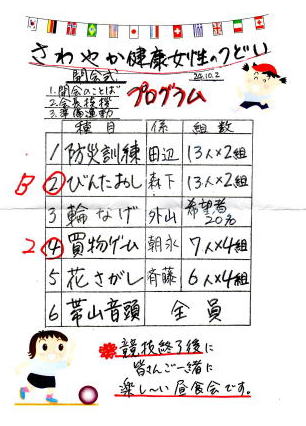 さわやか健康女性のつどい
開会式
24.10.2
1.開会のことば
2.会長挨拶
3.準備運動
プログラム
種目 係 組数
1 防災訓練 田辺 13人×2組
② びんたおし 森下 13人×2組
3 輪なげ 外山 希望者20名
2 ④ 買物ゲーム 朝永 7人×4組
5 花さがし 斉藤 6人×4組
6 帯山音頭 全員
競技終了後に
皆さんご一緒に
楽し〜い昼食会です。